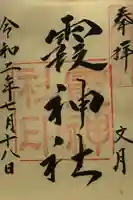 奉拝
文月
霞神社
令和二年七月十八日